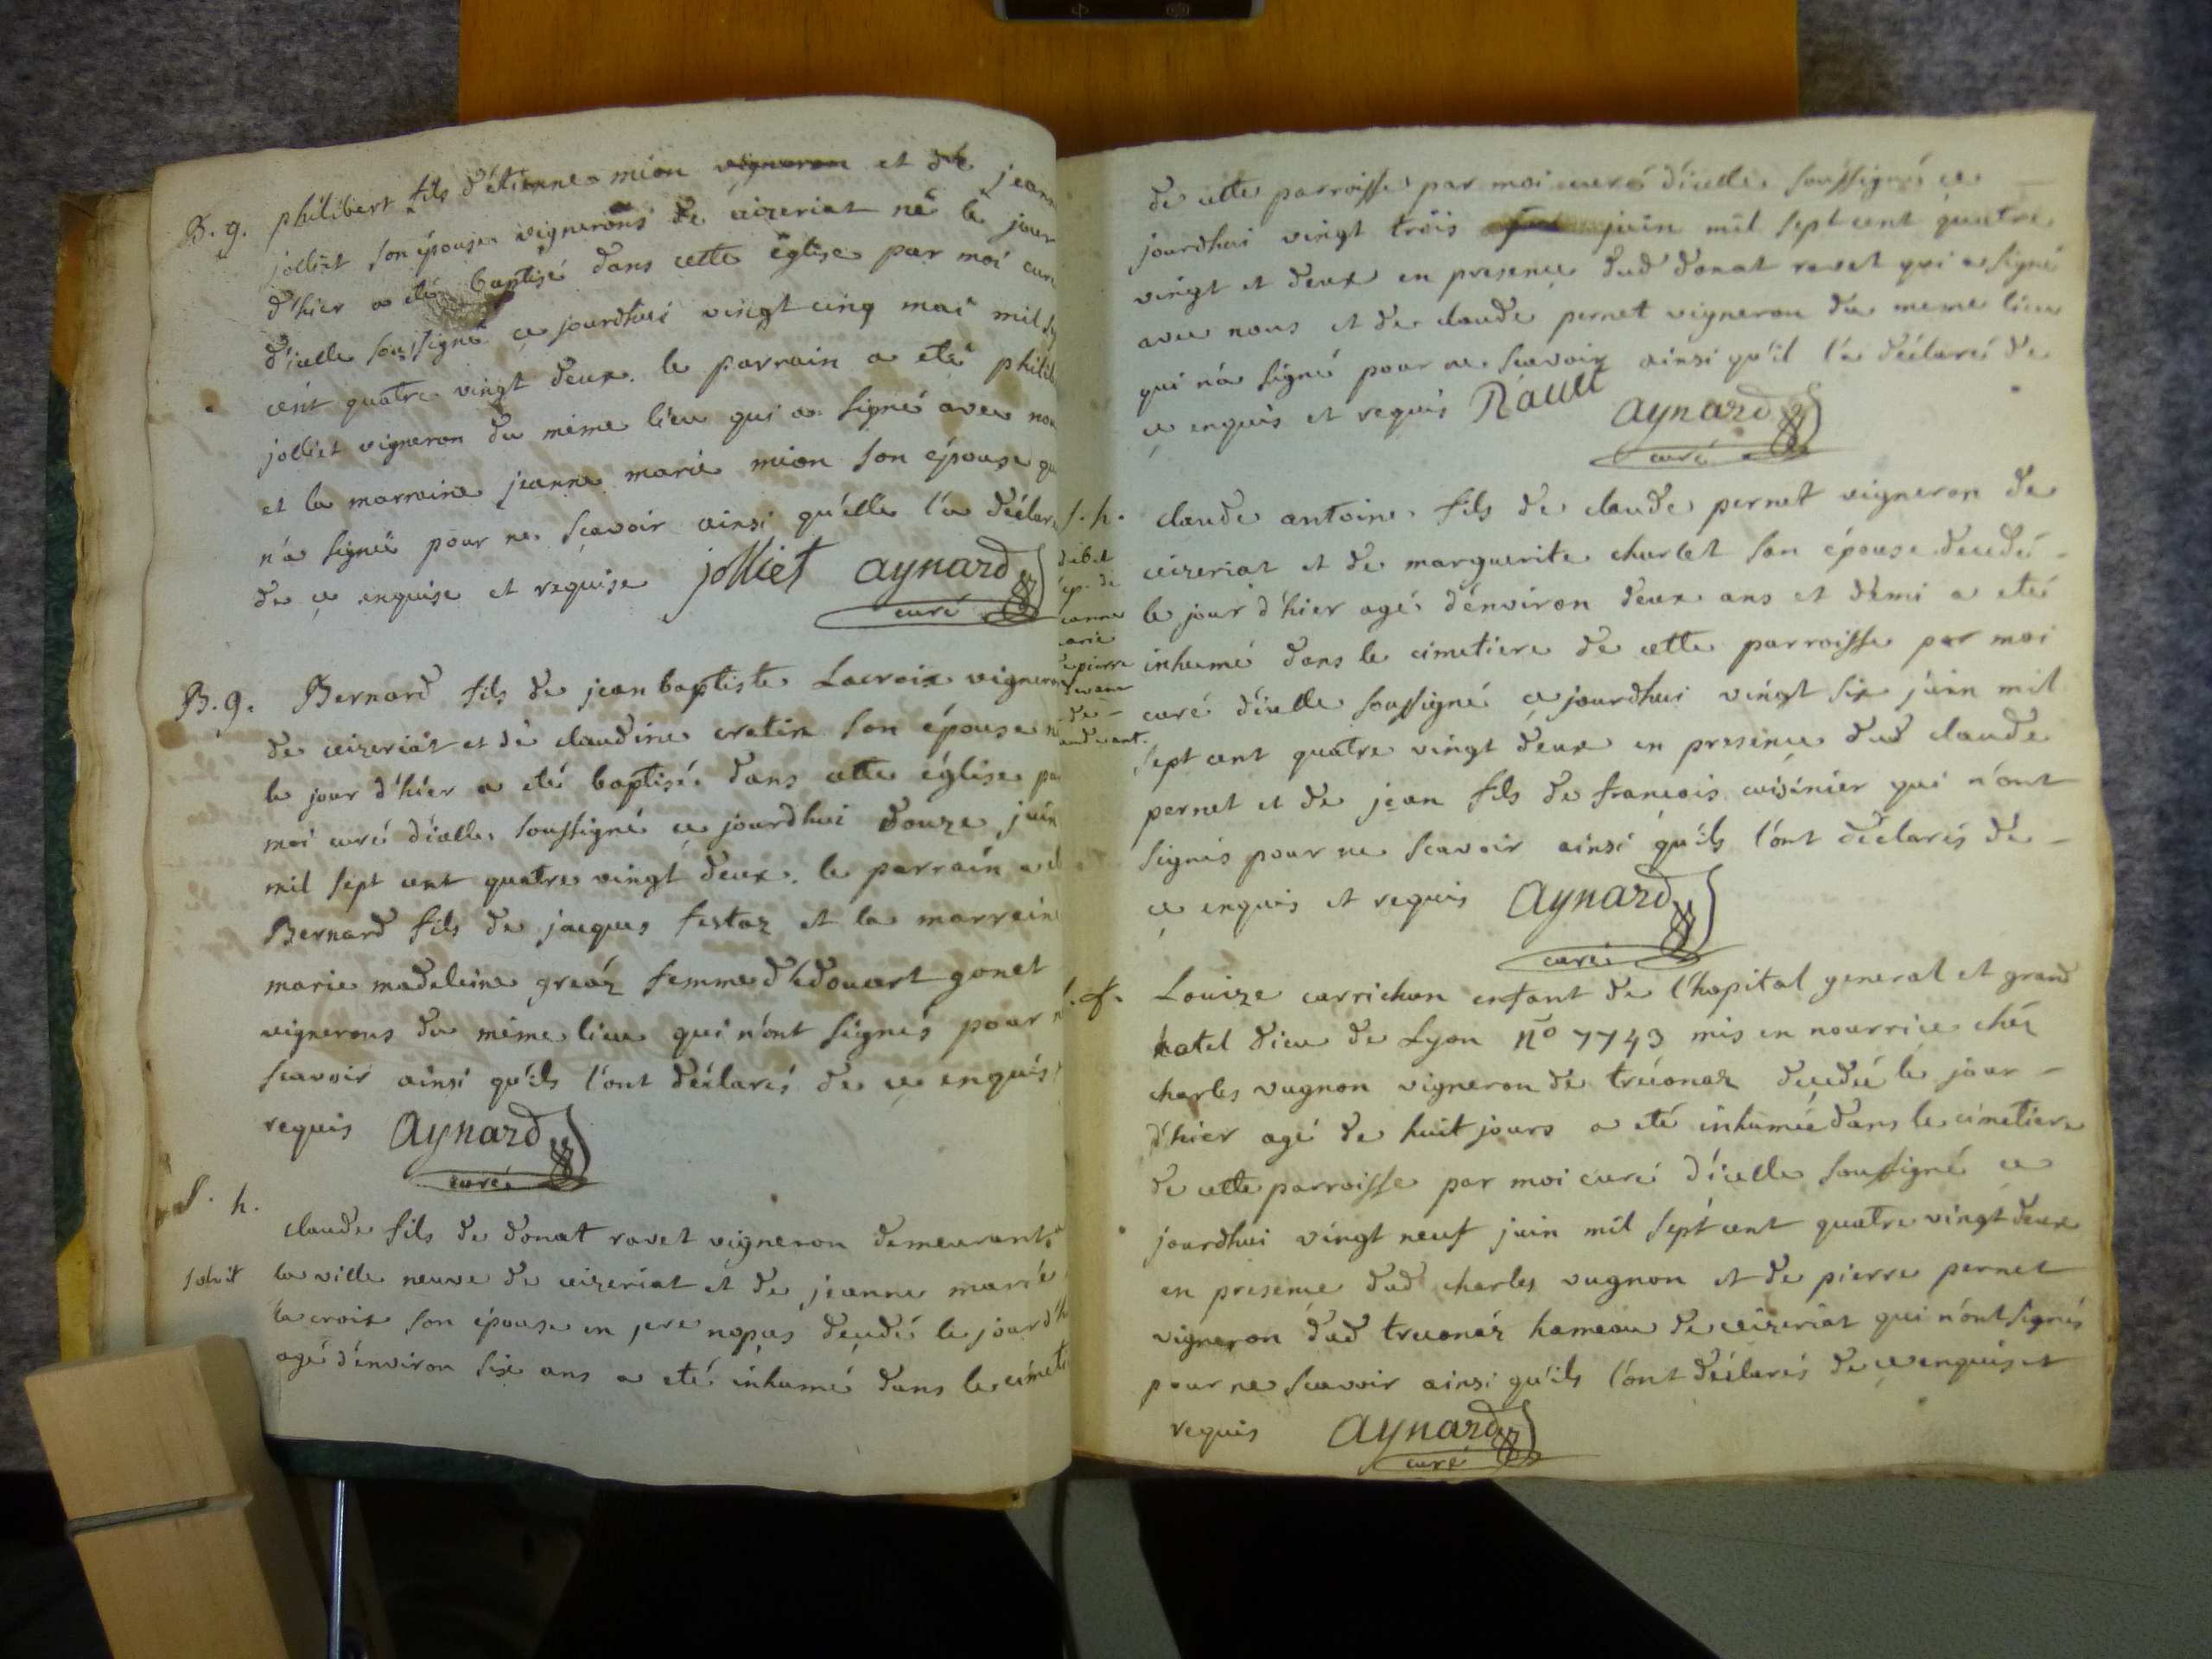 B. g. philibert fils d'étienne mion vigneron et de jeanne
jolliet son épouse vignerons de ceizeriat né le jour
d'hier a eté baptisé dans cette église par moi curé
d'icelle soussigné ce jourdhui vingt cinq mai mil
cent quatre vingt deux. le parrain a eté
jolliet vigneron du même lieu qui a signé avec nous
et la marraine jeanne marie mion son épouse qui
n'a signée pour ne scavoir ainsi qu'elle l'a déclaré
de ce enquise et requise jolliet aynard
curé
B. g. Bernard fils de jean baptiste Lacroix vigneron
de ceizeriat et de claudine cretin son épouse
le jour d'hier a eté baptisé dans cette église par
moi curé d'icelle soussigné ce jourdhui douze juin
mil sept cent quatre vingt deux. le parrain a
Bernard fils de jacques festaz et la marraine
marie madeleine gréaz femme d'édouart gonet
vignerons du même lieu qui n'ont signés pour
scavoir ainsi qu'ils l'ont déclarés de ce enquis
requis aynard
curé
S. h.
claude fils de donat ravet vigneron demeurant a
solvit la ville neuve de ceizeriat et de jeanne marie
lacroix son épouse en pre nopces decedé le jour d'h
agé d'environ six ans a eté inhumé dans le cimeti
de cette parroisse par moi curé d'icelle soussigné ce
jourdhui vingt trois juin mil sept cent quatre
vingt et deux en presence dud donat ravet qui a signé
avec nous et de claude pernet vigneron du meme lieu
qui n'a signé pour ne scavoir ainsi qu'il l'a déclaré de
ce enquis et requis Ravet aynard
curé
s. h. claude antoine fils de claude pernet vigneron de
debet ceizeriat et de marguerite charlet son épouse decedé -
le jour d'hier agé d'environ deux ans et demi a eté
inhumé dans le cimetiere de cette parroisse par moi
curé d'icelle soussigné ce jourdhui vingt six juin mil
sept cent quatre vingt deux en presence dud claude
pernet et de jean fils de francois cuisinier qui n'ont
signés pour ne scavoir ainsi qu'ils l'ont déclarés de -
ce enquis et requis aynard
curé
s. f. Louize carrichon enfant de l'hopital general et grand
hotel dieu de Lyon no 7743 mis en nourrice chéz
charles vugnon vigneron de tréconaz decedé le jour -
d'hier agé de huit jours a eté inhumée dans le cimetiere
de cette parroisse par moi curé d'icelle soussigné ce
jourdhui vingt neuf juin mil sept cent quatre vingt deux
en presence dud charles vugnon et de pierre pernet
vigneron dud treconaz hameau de ceizeriat qui n'ont signés
pour ne scavoir ainsi qu'ils l'ont déclarés de ce enquis et
requis aynard
curé